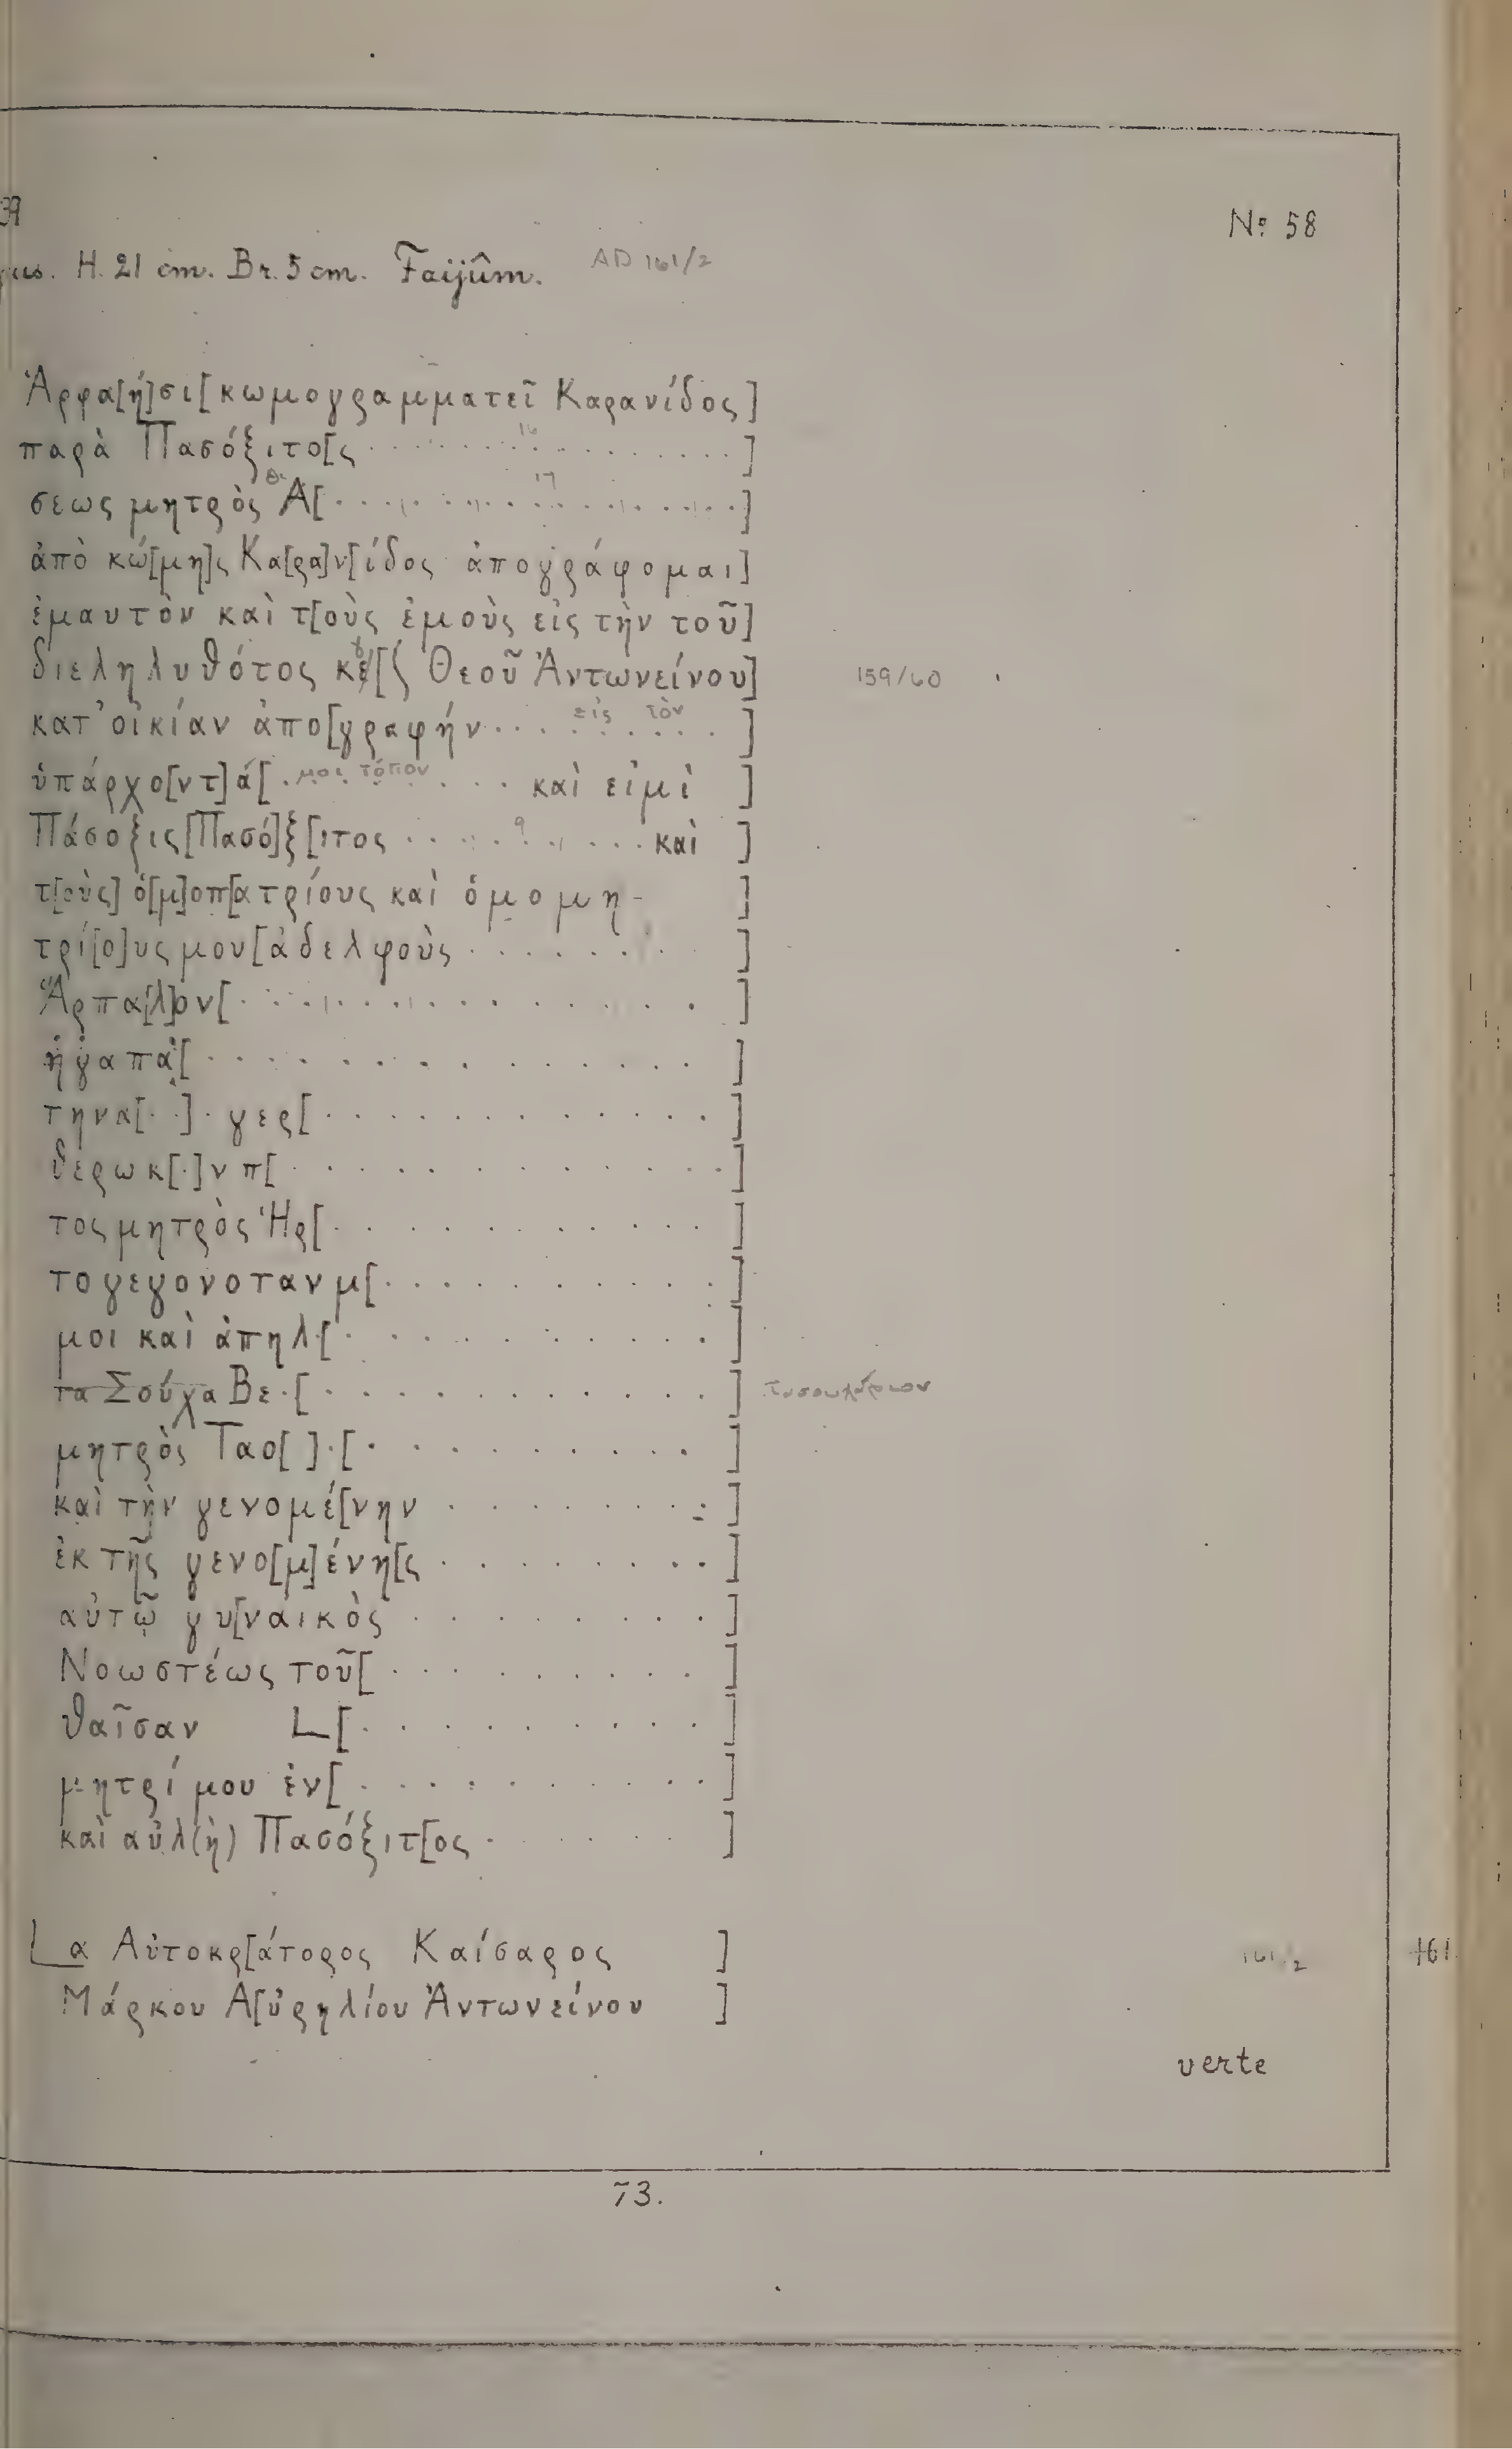 39
No 58
H. 21 cm. Br. 5 cm. Faijûm. AD 161/2
Ἁρφα[ή]σι[κωμογραμματεῖ Καρανίδος]
16
παρὰ Πασόξιτο[ς . . . . . . . . . . . . . ]
17
σεως μητρὸς Ἀ[. . . . . . . . . . . . . ]
ἀπὸ κώ[μη]ς Κα[ρα]ν[ίδος ἀπογράφομαι]
ἐμαυτὸν καὶ τ[οὺς ἐμοὺς εἰς τὴν τοῦ]
διεληλυθότος κε[ʃ Θεοῦ Ἀντωνείνου] 159/60
εἰς τὸν
κατ' οἰκίαν ἀπο[γραφήν . . . . . . . . ]
μοι τόπον
ὑπάρχο[ντ]ά[. . . . . . . . καὶ εἰμὶ ]
9
Πάσοξις[Πασό]ξ[ιτος . . . . . . . . . καὶ ]
τ[οὺς] ὁ[μ]οπ[ατρίους καὶ ὁμομη- ]
τρί[ο]υς μου[ἀδελφοὺς . . . . . . . ]
Ἅρπα[λ]ον[. . . . . . . . . . . . ]
ἠγαπα[. . . . . . . . . . . . ]
τηνα[. .]. γερ[. . . . . . . . . . ]
θερωκ[.]ν π[. . . . . . . . . . ]
τος μητρὸς Ἡρ[. . . . . . . . . ]
τογεγονοταν μ[. . . . . . . . . ]
μοι καὶ ἀπηλ[. . . . . . . . . ]
τα Σούχα Βε.[. . . . . . . . . . ]
μητρὸς Ταο[ ].[. . . . . . . . . ]
καὶ τὴν γενομέ[νην . . . . . . . . ]
ἐκ τῆς γενο[μ]ένη[ς . . . . . . . . ]
αὐτῷ γυ[ναικὸς . . . . . . . . ]
Νοωστέως τοῦ[. . . . . . . . . ]
θαῖσαν L[. . . . . . . . . ]
μητρί μου ἐν[. . . . . . . . . ]
καὶ αὐλ(ὴ) Πασόξιτ[ος . . . . . ]
L α Αὐτοκρ[άτορος Καίσαρος ] 161/2 161
Μάρκου Α[ὐρηλίου Ἀντωνείνου ]
verte
73.